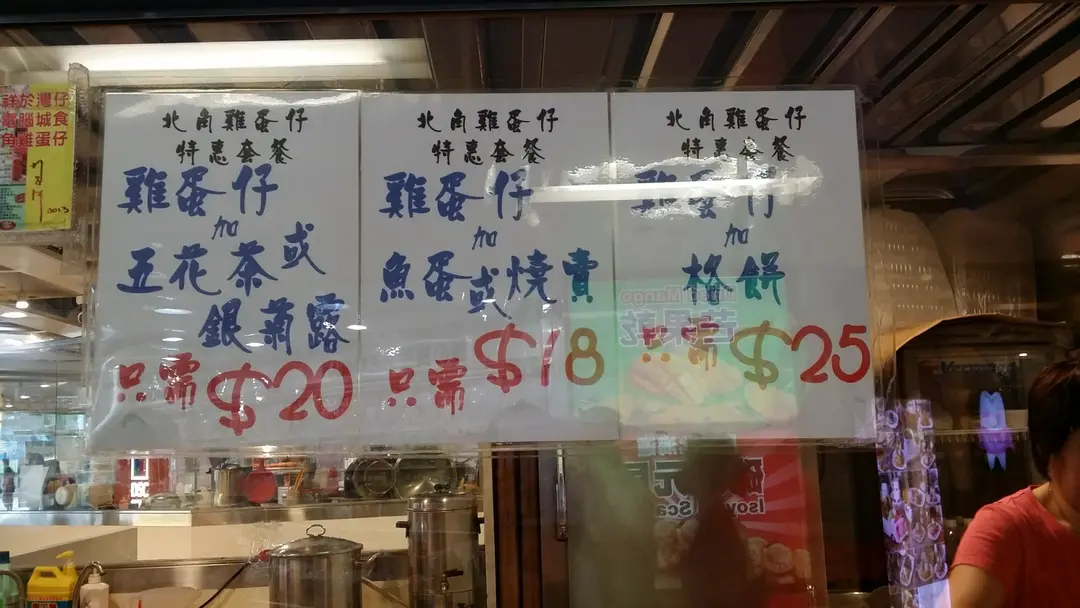 祥於灣仔
電腦城食
角雞蛋仔
北角雞蛋仔
特惠套餐
雞蛋仔
加
五花茶或
銀菊露
只需$20
北角雞蛋仔
特惠套餐
雞蛋仔
加
魚蛋或燒賣
只需$18
北角雞蛋仔
特惠套餐
雞蛋仔
加
格餅
只需$25